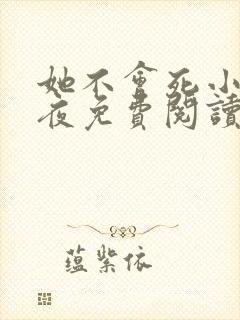 她不會死小
夜免費閱讀
蕴紫依